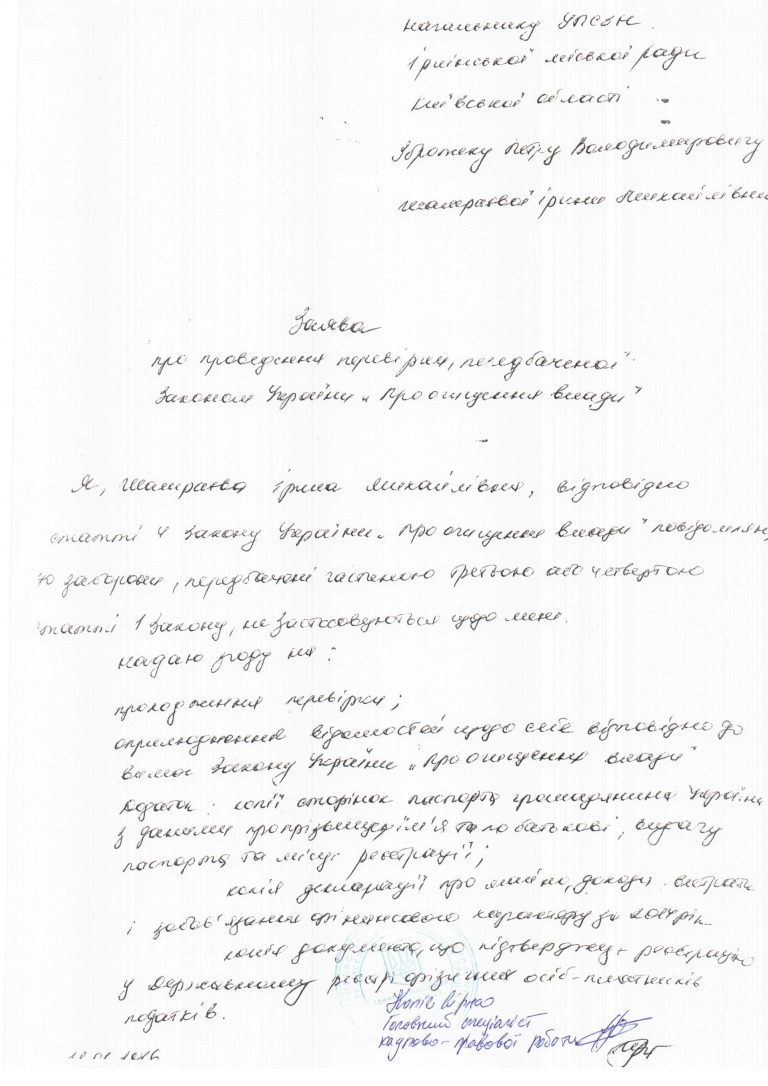 начальнику УПСЗН
Ірпінської міської ради
Київської області
Петру Володимировичу
Ірини Михайлівни
Заява
про проведення перевірки, передбаченої
Законом України „Про очищення влади"
Я, Ірина Михайлівна, відповідно
статті 4 Закону України „Про очищення влади" повідомляю,
заборони, передбачені частиною третьою або четвертою
статті 1 Закону, не застосовуються щодо мене.
надаю згоду на:
проходження перевірки;
оприлюднення відомостей щодо себе відповідно до
вимог Закону України „Про очищення влади"
Додаток: копії сторінок паспорта громадянина України
з даними про прізвище, ім'я та по батькові, видачу
паспорта та місце реєстрації;
копія декларації про майно, доходи, витрати
і зобов'язання фінансового характеру за 2014 рік
копія документа, що підтверджує реєстрацію
у Державному реєстрі фізичних осіб-платників
податків.
Копія вірна
Головний спеціаліст
кадрово-правової роботи